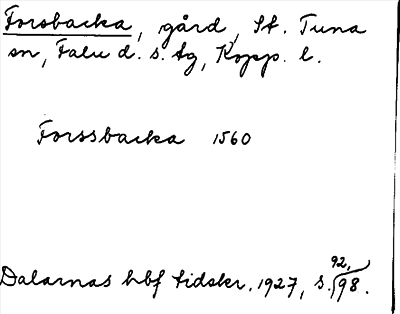 Forsbacka, gård, St. Tuna
sn, Falu d. s. tg, Kopp. l.
Forssbacka 1560
92,
Dalarnas hbf tidskr. 1927, s. 98.